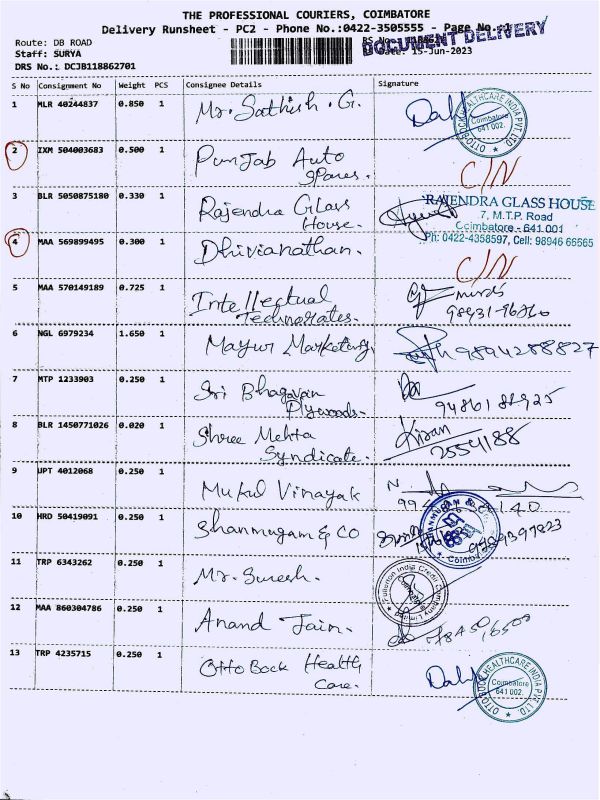 THE PROFESSIONAL COURIERS, COIMBATORE
Delivery Runsheet - PC2 - Phone No.:0422-3505555 - Page No.:1
DOCUMENT DELIVERY
Route: DB ROAD
Staff: SURYA
Date: 15-Jun-2023
DRS No.: DCJB118862701
S No Consignment No Weight PCS Consignee Details Signature
1 MLR 40244837 0.850 1 Mr. Sathish . G.
OTTO BOCK HEALTHCARE INDIA PVT. LTD.
Coimbatore
641 002.
2 IXM 504003683 0.500 1 Punjab Auto
Spares. C/N
3 BLR 5050875180 0.330 1 Rajendra Glass
House.
RAJENDRA GLASS HOUSE
7, M.T.P. Road
Coimbatore - 641 001
Ph: 0422-4358597, Cell: 98946 66565
4 MAA 569899495 0.300 1 Dhivianathan. C/N
5 MAA 570149189 0.725 1 Intellectual
Technorates.
6 NGL 6979234 1.650 1 Mayur Marketing 9894288827
7 MTP 1233903 0.250 1 Sri Bhagavan
Plywoods.
8 BLR 1450771026 0.020 1 Shree Mehta
Syndicate. Kiran
2554188
9 JPT 4012068 0.250 1 Mukul Vinayak
10 HRD 50419091 0.250 1 Shanmugam & Co
11 TRP 6343262 0.250 1 Mr. Suresh.
Fullerton India Credit Company Limited
12 MAA 860304786 0.250 1 Anand Jain.
13 TRP 4235715 0.250 1 Otto Bock Health
Care.
OTTO BOCK HEALTHCARE INDIA PVT. LTD.
Coimbatore
641 002.